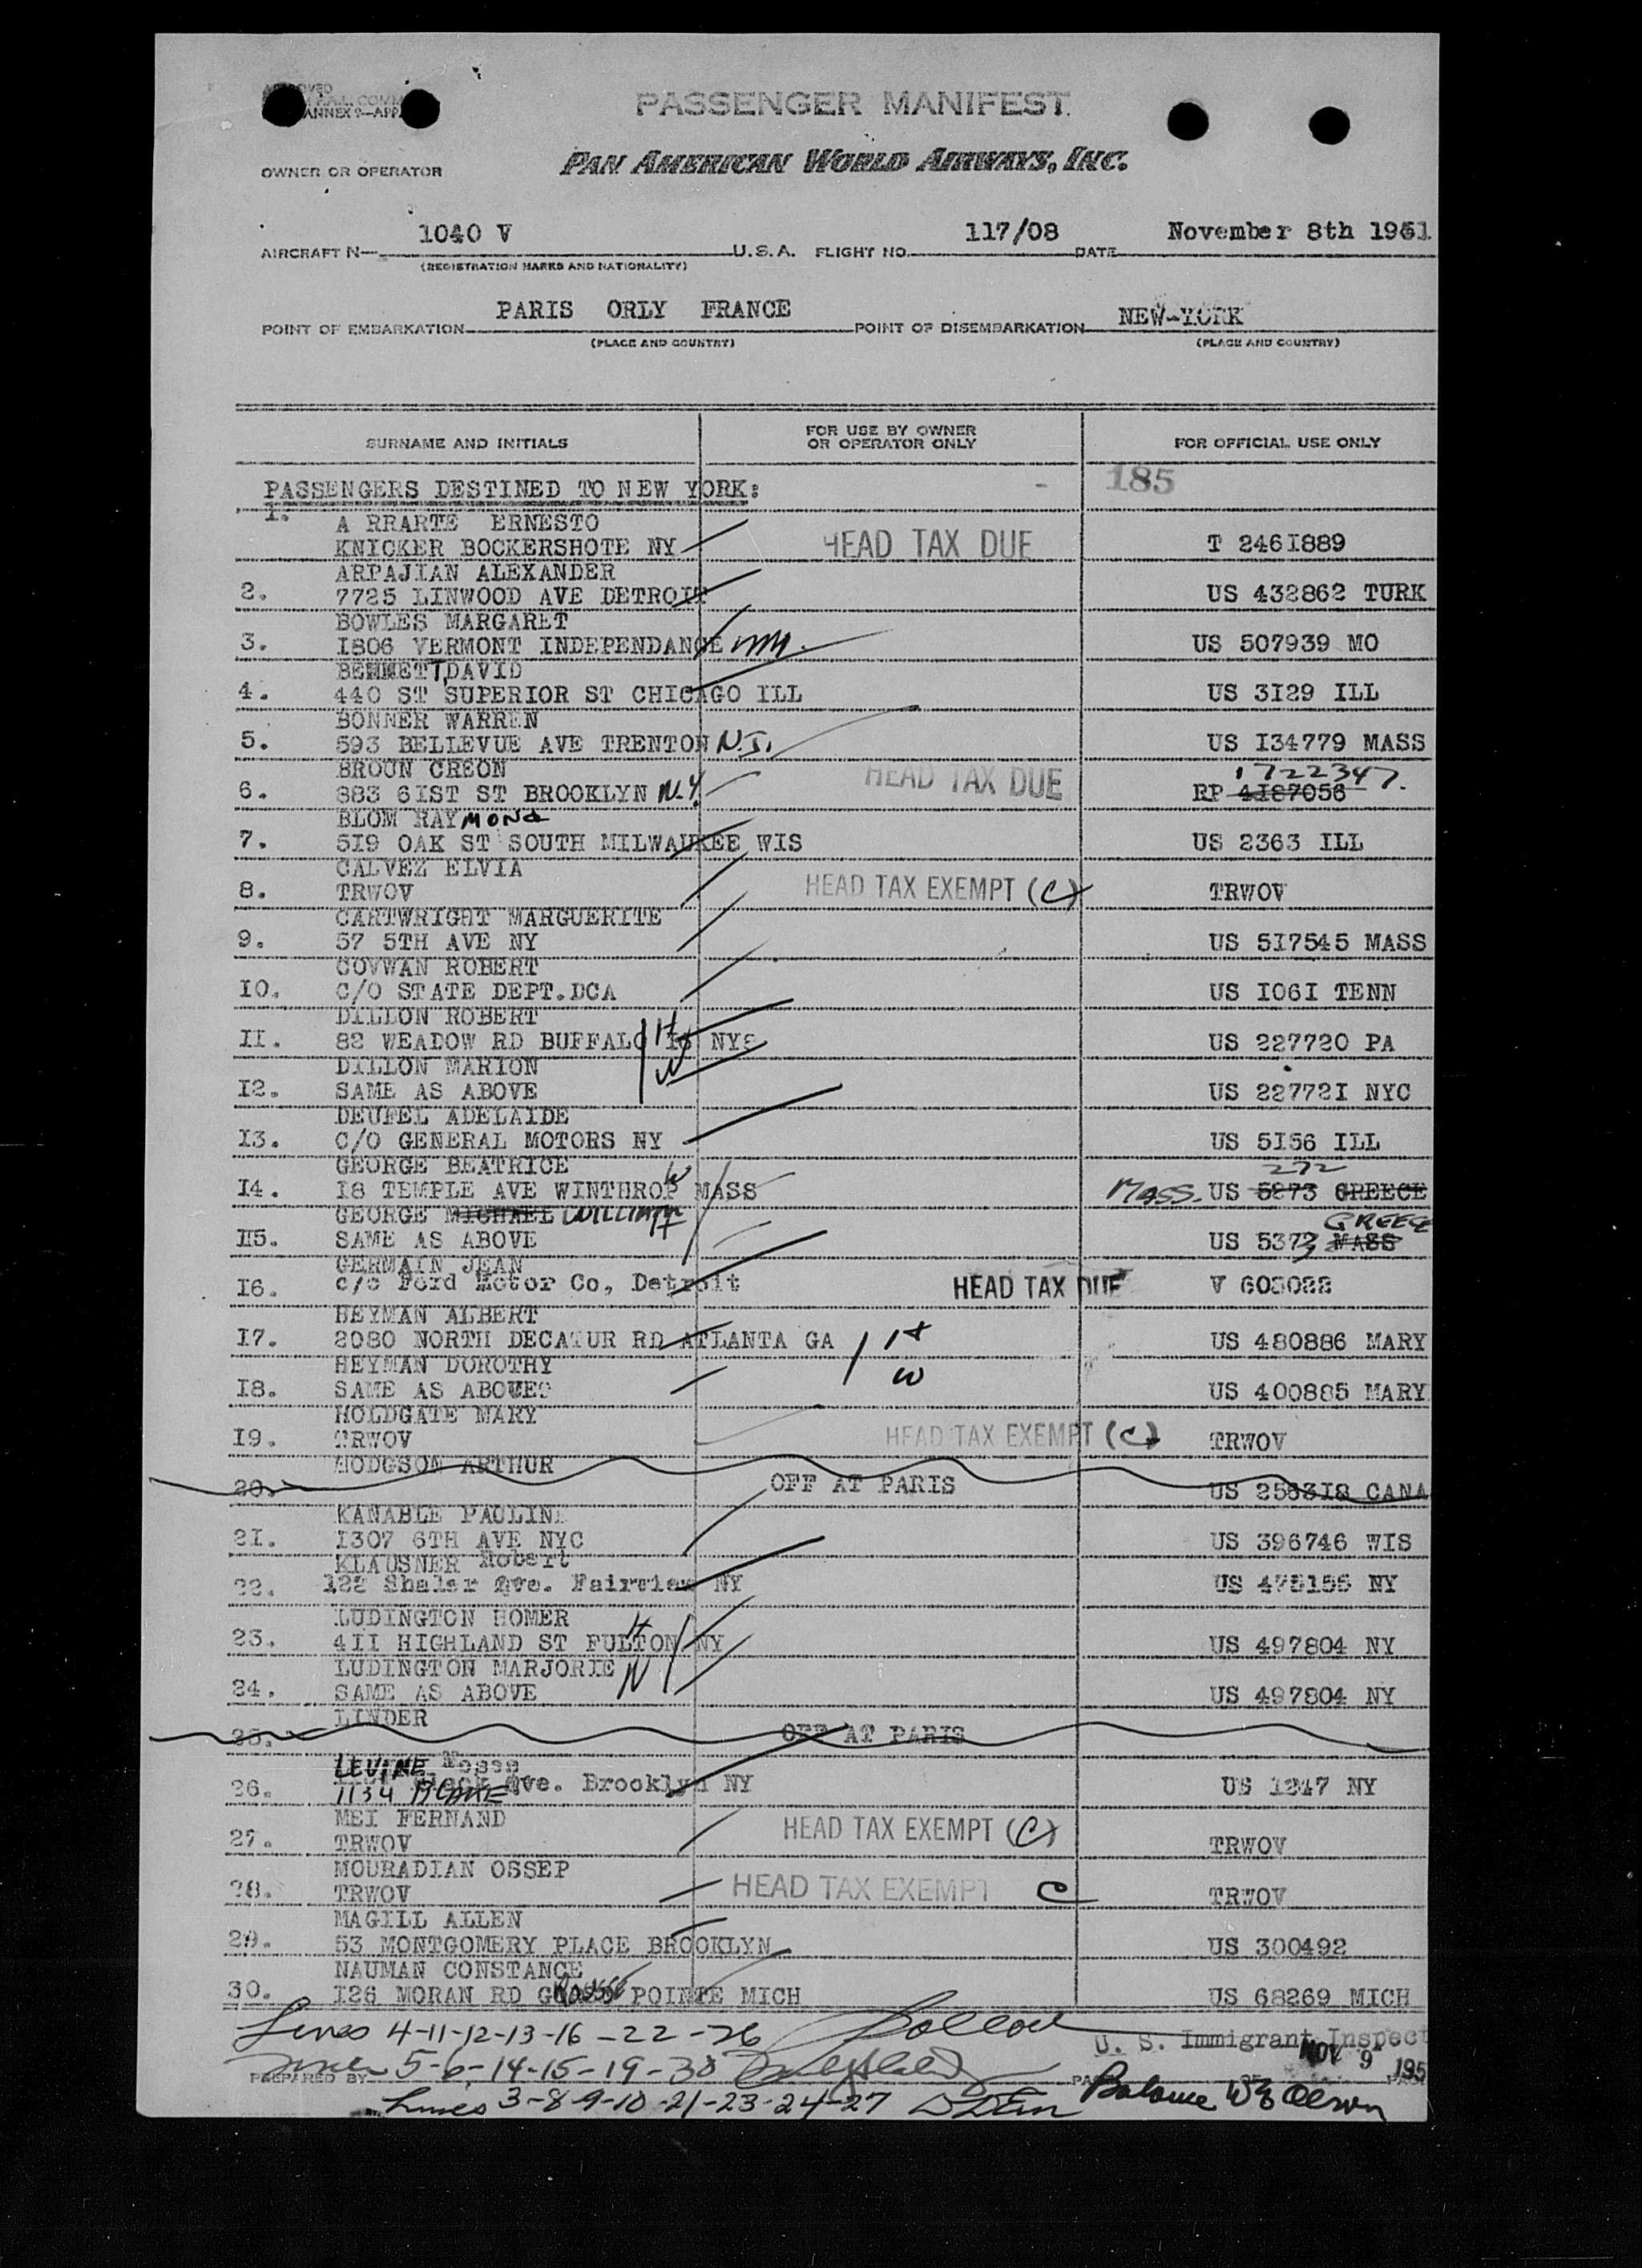 PASSENGER MANIFEST
PAN AMERICAN WORLD AIRWAYS, INC.
OWNER OR OPERATOR
AIRCRAFT N— 1040 V U.S.A. FLIGHT NO. 117/08 DATE November 8th 1951
(REGISTRATION MARKS AND NATIONALITY)
POINT OF EMBARKATION PARIS ORLY FRANCE POINT OF DISEMBARKATION NEW-YORK
(PLACE AND COUNTRY) (PLACE AND COUNTRY)
SURNAME AND INITIALS FOR USE BY OWNER OR OPERATOR ONLY FOR OFFICIAL USE ONLY
PASSENGERS DESTINED TO NEW YORK: - 185
1. A RRARTE ERNESTO
KNICKER BOCKERSHOTE NY HEAD TAX DUE T 246I889
ARPAJIAN ALEXANDER
2. 7725 LINWOOD AVE DETROIT US 432862 TURK
BOWLES MARGARET
3. I806 VERMONT INDEPENDANCE US 507939 MO
BENNETT, DAVID
4. 440 ST SUPERIOR ST CHICAGO ILL US 3I29 ILL
BONNER WARREN
5. 593 BELLEVUE AVE TRENTON N.J. US I34779 MASS
BROUN CREON HEAD TAX DUE 1722347.
6. 883 6IST ST BROOKLYN N.Y. RP 4I87056
BLOM RAYMOND
7. 5I9 OAK ST SOUTH MILWAUKEE WIS US 2363 ILL
CALVEZ ELVIA
8. TRWOV HEAD TAX EXEMPT (C) TRWOV
CARTWRIGHT MARGUERITE
9. 57 5TH AVE NY US 5I7545 MASS
COVWAN ROBERT
I0. C/O STATE DEPT.DCA US I06I TENN
DILLON ROBERT H
II. 82 WEADOW RD BUFFALO NYS US 227720 PA
DILLON MARION W
I2. SAME AS ABOVE US 22772I NYC
DEUFEL ADELAIDE
I3. C/O GENERAL MOTORS NY US 5I56 ILL
GEORGE BEATRICE W 272
I4. I8 TEMPLE AVE WINTHROP MASS MASS. US 5273 GREECE
GEORGE MICHAEL WILLIAM H GREECE
II5. SAME AS ABOVE US 5372 3 MASS
GERMAIN JEAN
I6. c/o Ford Motor Co, Detroit HEAD TAX DUE V 603022
HEYMAN ALBERT
I7. 2080 NORTH DECATUR RD ATLANTA GA H US 480886 MARY
HEYMAN DOROTHY W
I8. SAME AS ABOVES US 400885 MARY
HOLDGATE MARY
I9. TRWOV HEAD TAX EXEMPT (C) TRWOV
HODGSON ARTHUR
20. OFF AT PARIS US 2563I8 CANA
KANABLE PAULINE
2I. I307 6TH AVE NYC US 396746 WIS
KLAUSNER Robert
22. 122 Shaler Ave. Fairview NY US 475155 NY
LUDINGTON HOMER H
23. 4II HIGHLAND ST FULTON NY US 497804 NY
LUDINGTON MARJORIE W
24. SAME AS ABOVE US 497804 NY
LINDER
25. OFF AT PARIS
LEVINE
26. 1134 BLAKE Ave. Brooklyn NY US 1247 NY
MEI FERNAND
27. TRWOV HEAD TAX EXEMPT (C) TRWOV
MOURADIAN OSSEP
28. TRWOV HEAD TAX EXEMPT C TRWOV
MAGILL ALLEN
29. 53 MONTGOMERY PLACE BROOKLYN US 300492
NAUMAN CONSTANCE
30. I26 MORAN RD GROSSE POINTE MICH US 68269 MICH
Lines 4-11-12-13-16-22-26
U. S. Immigrant Inspect
NOV 9 195
5-6-14-15-19-30
PREPARED BY
Lines 3-8-9-10-21-23-24-27
Balance W E Olson